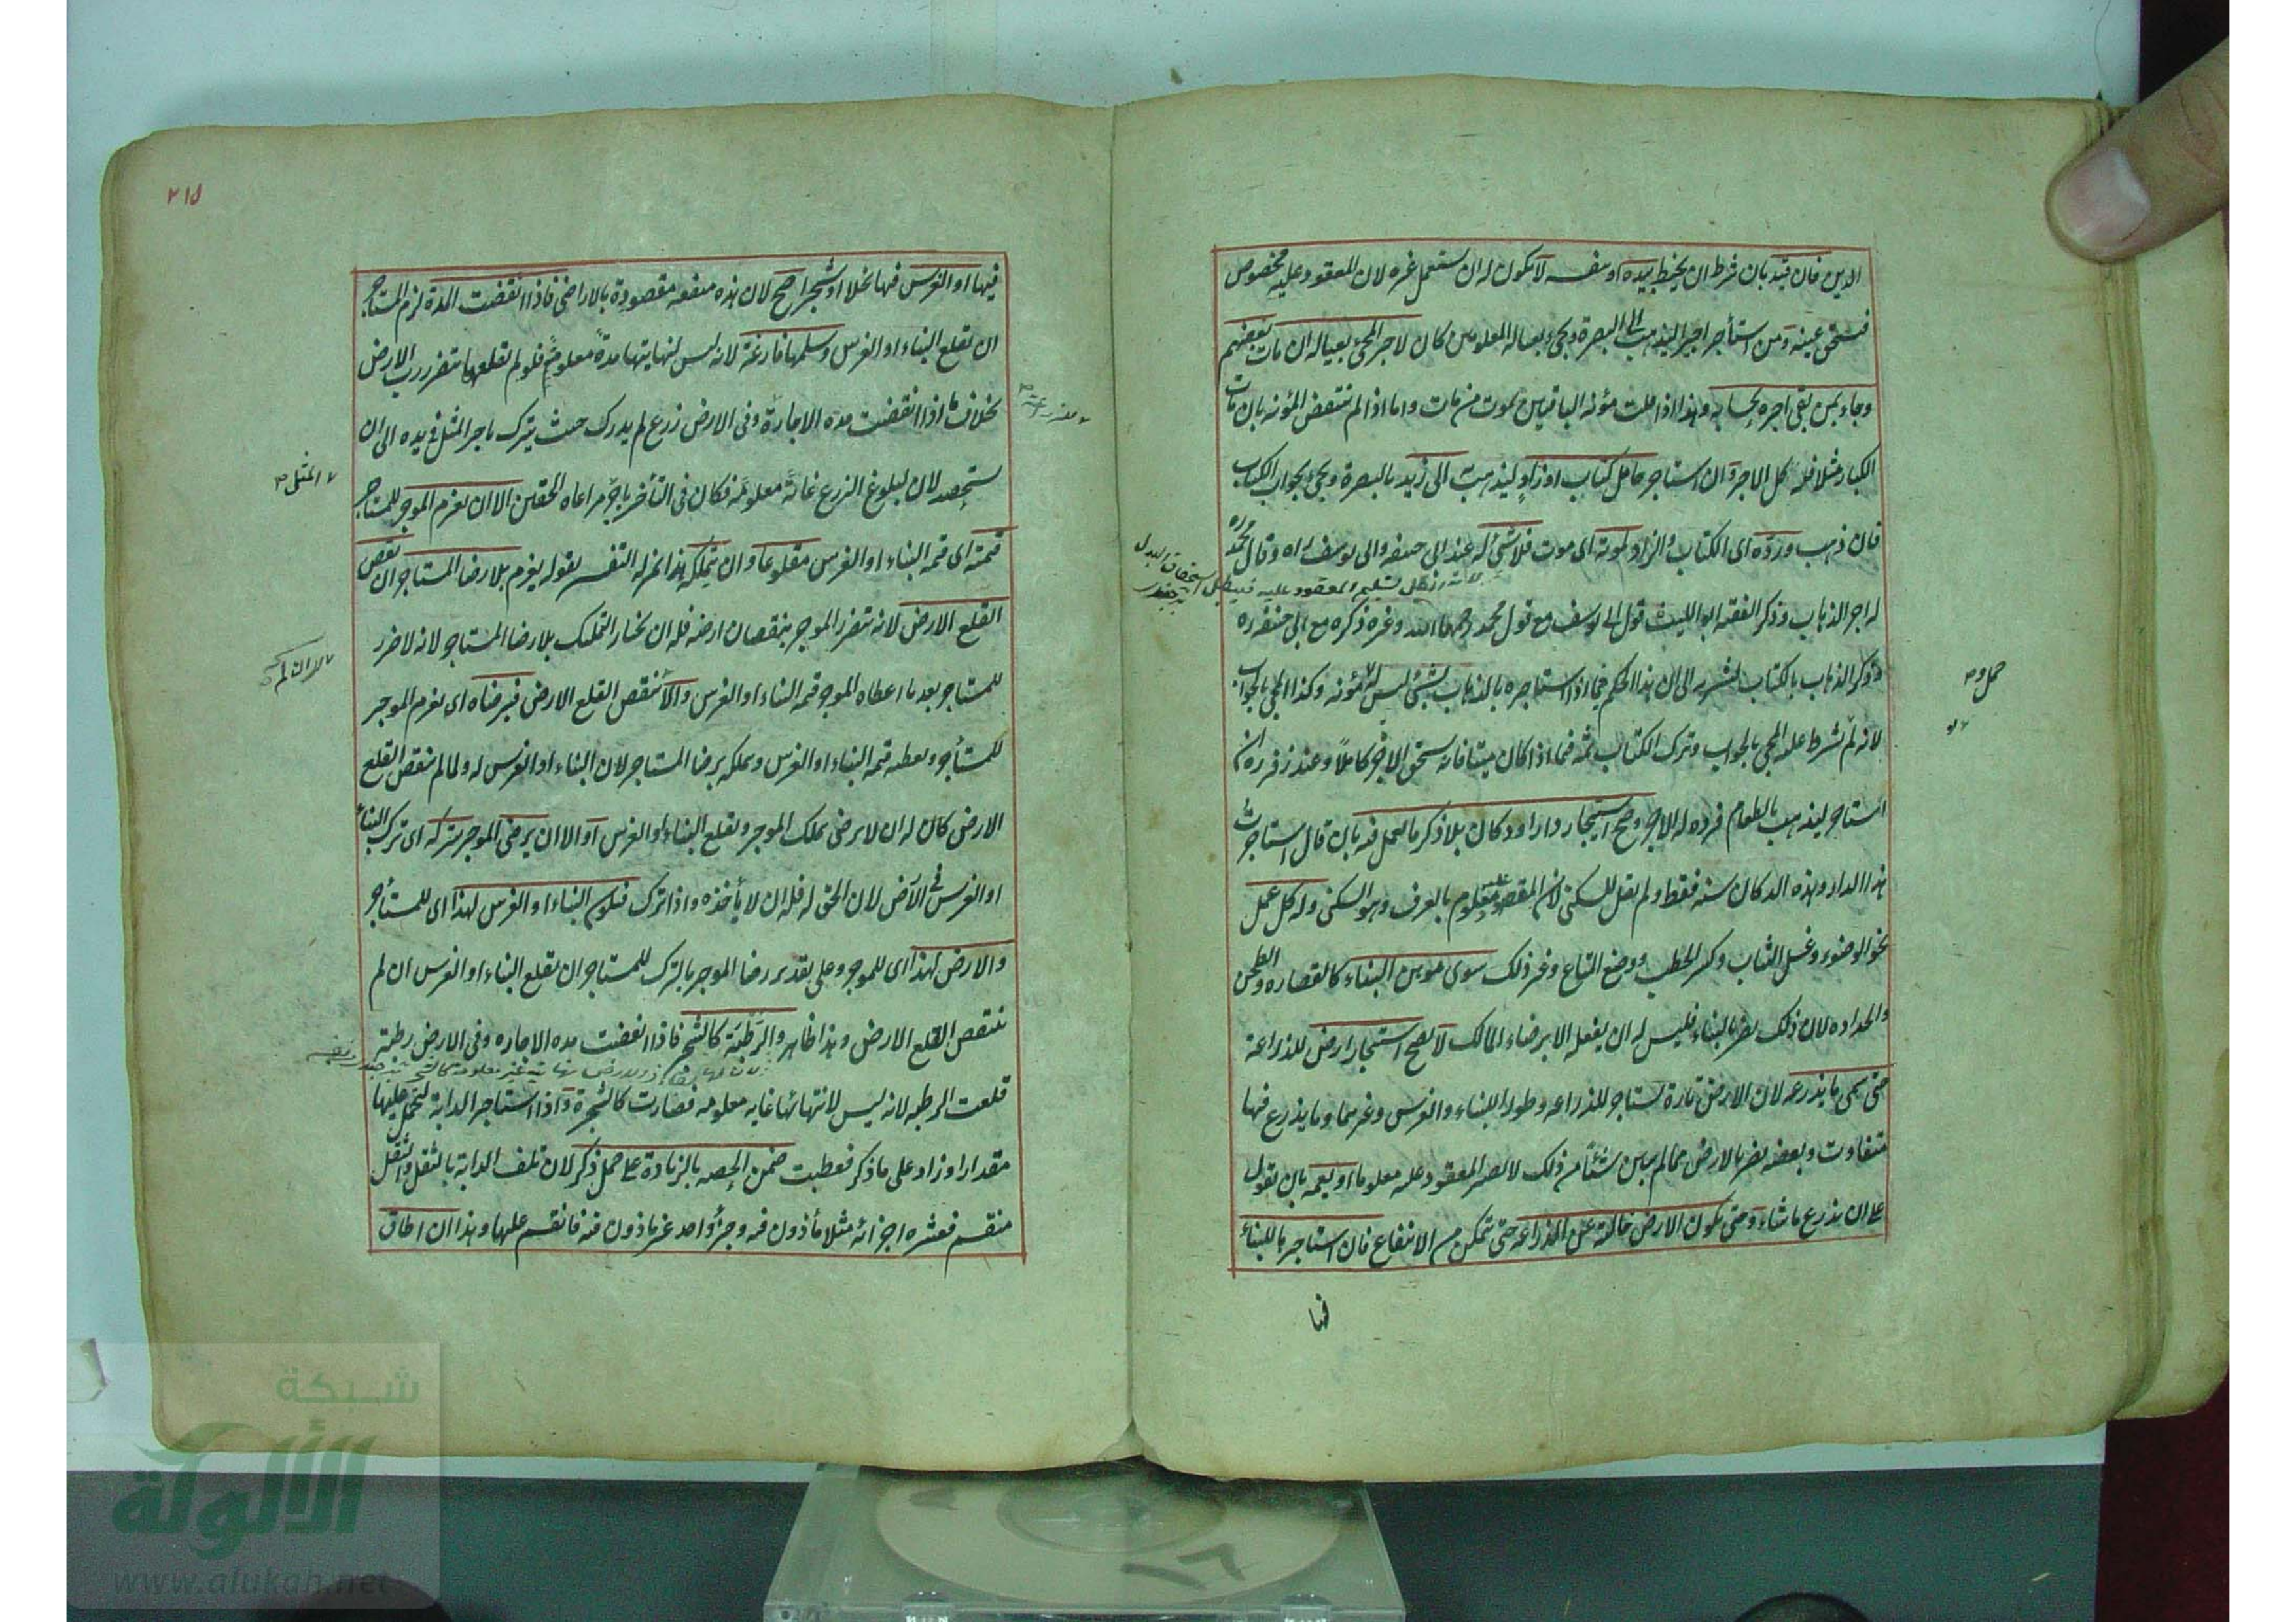 الدين فان قيد بان شرط ان يخيط بيده او بنفسه لا يكون له ان يستعمل غيره لان المعقود عليه مخصوص
فيستحق عينه ومن استأجر اجيرا ليذهب الى البصرة ويجئ بعياله المعلومين كان لاجر المجئ بعياله ان مات بعضهم
وجاء بمن بقى اجره بحسابه وهذا اذا قلت مؤنة الباقين بموت من مات واما اذا لم تنتقض المؤنة بان مات
الكبار مثلا فله كل الاجر وان استاجر حامل كتاب او زاد ليذهب الى زيد بالبصرة ويجئ بجواب الكتاب
فان ذهب ورده اى الكتاب والزاد لموته اى موت فلا شئ له عند ابى حنيفة وابى يوسف ره وقال محمد ره
لانه نقل تسليم المعقود عليه فيبطل استحقاق البدل
له اجر الذهاب وذكر الفقيه ابو الليث قول ابى يوسف مع قول محمد رحمهما الله وغيره ذكره مع ابى حنيفة ره
وذكر الذهاب بالكتاب ليشير الى ان هذا الحكم فيما اذا استاجره بالذهاب بشئ ليس له مؤنة وكذا المجئ بالجواب
حمل و
لانه لم يشرط عليه المجئ بالجواب وترك الكتاب ثمه فيما اذا كان ميتا فانه يستحق الاجر كاملا وعند زفر ره ان
استاجر ليذهب بالطعام فرده له الاجر وصح استيجار دار او دكان بلا ذكر ما يعمل فيه بان قال استاجرت
هذا الدار وهذه الدكان سنة فقط ولم يقل للسكنى لان المقصود معلوم بالعرف وهو السكنى وله كل عمل
نحو الوضوء وغسل الثياب وكسر الحطب ووضع المتاع وغير ذلك سوى موهن البناء كالقصارة والطحن
والحدادة لان ذلك يضر بالبناء فليس له ان يفعله الا برضاء المالك لا يصح استيجار ارض للزراعة
حتى سمى ما يزرعه لان الارض تارة تستاجر للزراعة وطورا للبناء والغرس وغيرهما وما يزرع فيها
متفاوت وبعضه يضر بالارض فما لم يبين شيئا من ذلك لا يصير المعقود عليه معلوما او يعمه بان يقول
على ان يزرع ما شاء وحتى يكون الارض خالية عن المزارعة حتى يتمكن من الانتفاع فان استاجرها للبناء
فيها
٢١٥
فيها او الغرس فيها نخلا او شجرا صح لان هذه منفعة مقصودة بالاراضى فاذا انقضت المدة لزم المستاجر
ان يقلع البناء او الغرس وسلمها فارغة لانه ليس لنهايتها مدة معلومة فلو لم تقلعها يتضرر رب الارض
بخلاف ما اذا انقضت مدة الاجارة وفى الارض زرع لم يدرك حيث يترك باجر المثل فى يده الى ان
يستحصد لان لبلوغ الزرع غاية معلومة فكان فى التأخير باجر مراعاة الحقين الا ان يغرم الموجر للمستاجر
المثل
قيمته اى قيمة البناء او الغرس مقلوعا وان يتملكه هذا بمنزلة التفسير لقوله يغرم بلا رضا المستاجر ان نقص
القلع الارض لانه يتضرر الموجر بنقصان ارضه فله ان يختار التملك بلا رضا المستاجر لانه لا ضرر
للمستاجر بعد ما اعطاه الموجر قيمة البناء او الغرس والا تنقص القلع الارض فبرضاه اى يغرم الموجر
للمستأجر ويعطيه قيمة البناء او الغرس ويملكه برضا المستاجر لان البناء او الغرس له ولما لم ينقص القلع
الارض كان له ان لا يرضى بملك الموجر ويقلع البناء او الغرس او الا ان يرضى الموجر بتركه اى ترك البناء
او الغرس فى الارض لان الحق له فله ان لا يأخذه واذا ترك فيكون البناء او الغرس لهذا اى للمستأجر
والارض لهذا اى للموجر وعلى تقدير رضا الموجر بالترك للمستاجر ان يقلع البناء او الغرس ان لم
ينتقص القلع الارض وهذا ظاهر والرطبة كالشجر فاذا انقضت مدة الاجارة وفى الارض رطبة
قلعت الرطبة لانه ليس لانتهائها غاية معلومة فصارت كالشجرة واذا استاجر الدابة ليحمل عليها
مقدارا وزاد على ما ذكر فعطبت ضمن الحصة بالزيادة على حمل ذكر لان تلف الدابة بالثقل والثقل
منقسم فعشرة اجزائه مثلا مأذون فيه وجزء واحد غير ماذون فيه فانقسم عليها وهذا ان اطاق
شبكة
الألوكة
www.alukah.net